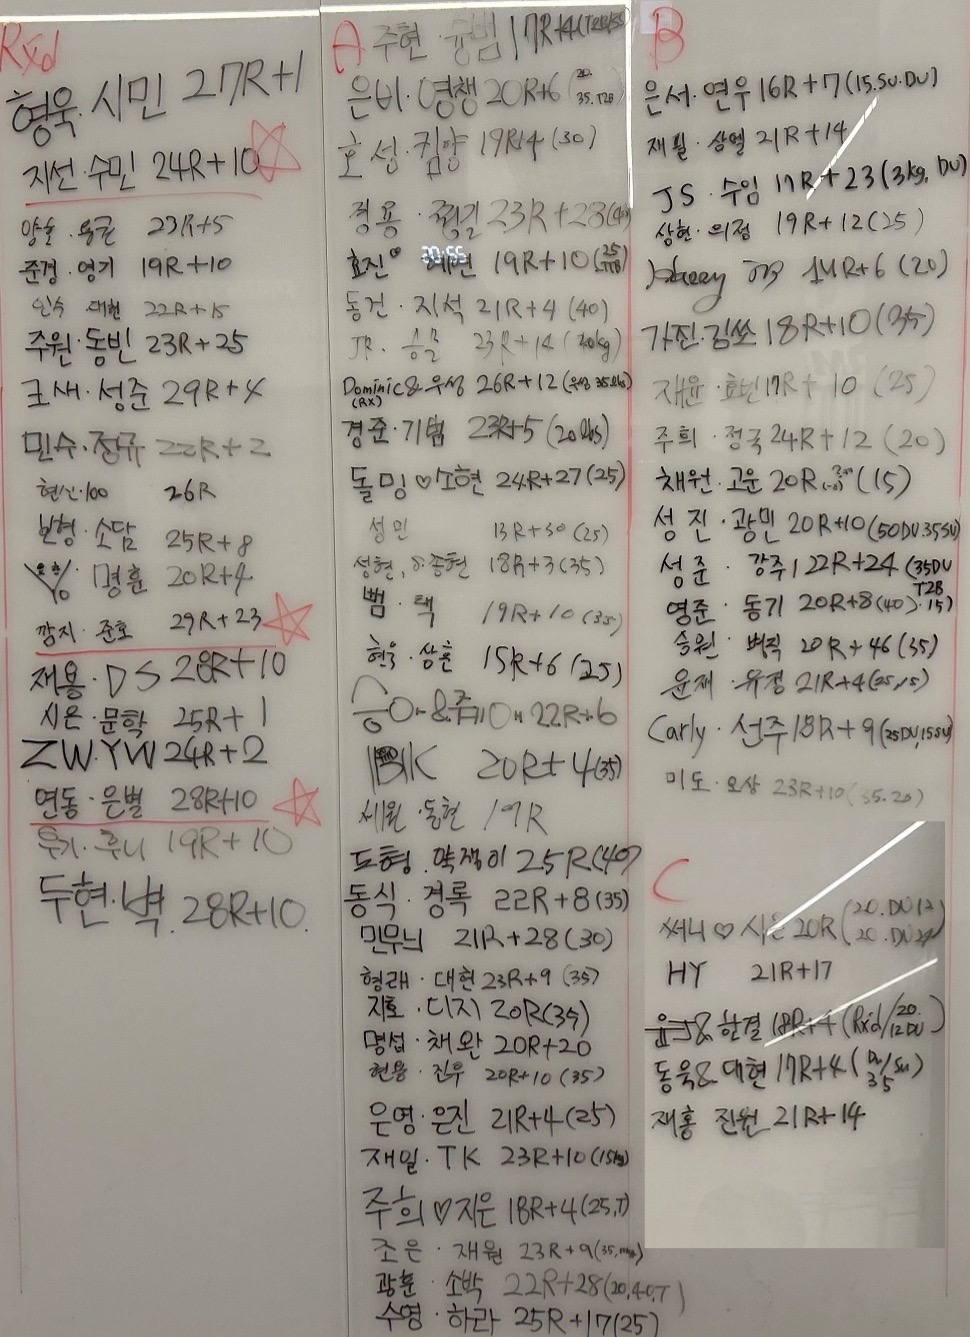 Rxd
형욱·시민 27R+1
지선·수민 24R+10
양호·용근 23R+5
준경·영기 19R+10
인수 대현 22R+15
주원·동빈 23R+25
조새·성준 29R+4
민수·정규 22R+2
현신·100 26R
보형·소담 25R+8
명훈 20R+4
깜지·준호 29R+23
재용·DS 28R+10
시온·문학 25R+1
ZW·YW 24R+2
연동·은별 28R+10
루니 19R+10
두현·벽 28R+10
A
주현·윤범 17R+4
은비·영챙 20R+6 (20. 35.T2B)
호성·킴향 19R+4 (30)
경용·찡길 23R+28
효진♡ 19R+10
동건·지석 21R+4 (40)
JR. 승물 23R+14 (20kg)
Dominic&우성 26R+12 (우성 35lbs)
(RX)
경준·기범 23R+5 (20lbs)
돌밍♡소현 24R+27 (25)
성민 13R+30 (25)
성현, 종현 18R+3 (35)
범·택 19R+10 (35)
현욱·상훈 15R+6 (25)
22R+6
BK 20R+4 (35)
세월·동현 19R
도형·악쟁이 25R (40)
동식·경록 22R+8 (35)
민무늬 21R+28 (30)
형래·대현 23R+9 (35)
지호·디지 20R (35)
명섭·채완 20R+20
현용·진우 20R+10 (35)
은영·은진 21R+4 (25)
재일·TK 23R+10 (15kg)
주희♡지은 18R+4 (25,T)
조은·재원 23R+9
광훈·소박 22R+28 (20,40,T)
수영·하라 25R+17 (25)
B
은서·연우 16R+7 (15.SU.DU)
재필·상열 21R+14
JS·수임 17R+23 (3kg, DU)
상현·의정 19R+12 (25)
R+6 (20)
가진·김쏘 18R+10 (35)
재윤·효빈 17R+10 (25)
주희·정국 24R+12 (20)
채원·고운 20R (15)
성진·광민 20R+10 (50DU.35SU)
성준·강주 22R+24 (35DU T2B
영준·동기 20R+8 (40)·15)
승원·벼락 20R+46 (35)
윤재·유정 21R+4 (25,15)
Carly·선주 18R+9 (25DU,15SU)
미도·모상 23R+10 (35.20)
C
써니♡시은 20R (20.DU12 20.DU24)
HY 21R+17
한결 18R+4 (Rxd/20. 12DU)
동욱&대현 17R+4 (Du/Su 35)
재홍 진원 21R+14